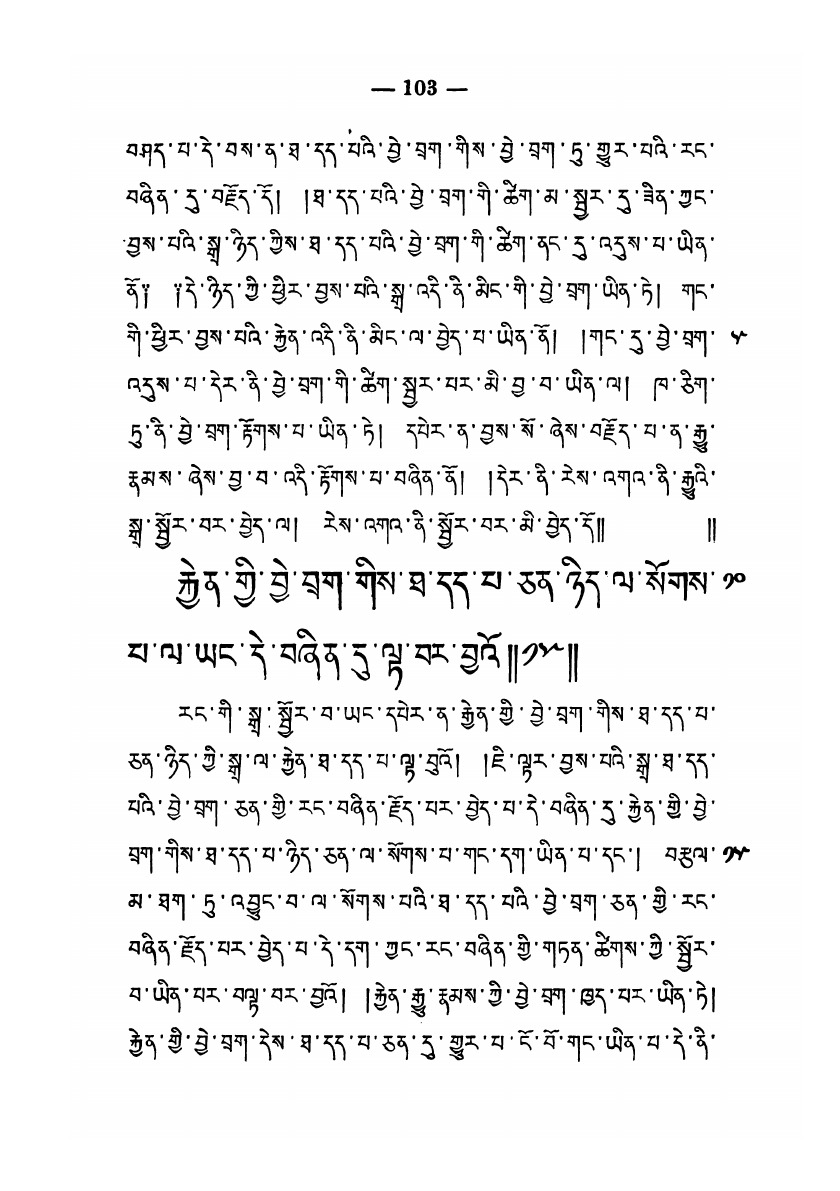 — 103 —
བཤད་པ་དེ་བས་ན་ཐ་དད་པའི་བྱེ་བྲག་གིས་བྱེ་བྲག་ཏུ་གྱུར་པའི་རང་
བཞིན་དུ་བརྗོད་དོ། །ཐ་དད་པའི་བྱེ་བྲག་གི་ཚིག་མ་སྦྱར་དུ་ཟིན་ཀྱང་
བྱས་པའི་སྒྲ་ཉིད་ཀྱིས་ཐ་དད་པའི་བྱེ་བྲག་གི་ཚིག་ནང་དུ་འདུས་པ་ཡིན་
ནོ༎ ༎དེ་ཉིད་ཀྱི་ཕྱིར་བྱས་པའི་སྒྲ་འདི་ནི་མིང་གི་བྱེ་བྲག་ཡིན་ཏེ། གང་
གི་ཕྱིར་བྱས་པའི་རྐྱེན་འདི་ནི་མིང་ལ་བྱེད་པ་ཡིན་ནོ། །གང་དུ་བྱེ་བྲག་ ༥
འདུས་པ་དེར་ནི་བྱེ་བྲག་གི་ཚིག་སྦྱར་བར་མི་བྱ་བ་ཡིན་ལ། ཁ་ཅིག་
ཏུ་ནི་བྱེ་བྲག་རྟོགས་པ་ཡིན་ཏེ། དཔེར་ན་བྱས་སོ་ཞེས་བརྗོད་པ་ན་རྒྱུ་
རྣམས་ཞེས་བྱ་བ་འདི་རྟོགས་པ་བཞིན་ནོ། །དེར་ནི་རེས་འགའ་ནི་རྒྱུའི་
སྒྲ་སྦྱོར་བར་བྱེད་ལ། རེས་འགའ་ནི་སྦྱོར་བར་མི་བྱེད་དོ༎ ༎
རྐྱེན་གྱི་བྱེ་བྲག་གིས་ཐ་དད་པ་ཅན་ཉིད་ལ་སོགས་ ༡༠
པ་ལ་ཡང་དེ་བཞིན་དུ་ལྟ་བར་བྱའོ༎༡༥༎
རང་གི་སྒྲ་སྦྱོར་བ་ཡང་དཔེར་ན་རྐྱེན་གྱི་བྱེ་བྲག་གིས་ཐ་དད་པ་
ཅན་ཉིད་ཀྱི་སྒྲ་ལ་རྐྱེན་ཐ་དད་པ་ལྟ་བུའོ། །ཇི་ལྟར་བྱས་པའི་སྒྲ་ཐ་དད་
པའི་བྱེ་བྲག་ཅན་གྱི་རང་བཞིན་རྗོད་པར་བྱེད་པ་དེ་བཞིན་དུ་རྐྱེན་གྱི་བྱེ་
བྲག་གིས་ཐ་དད་པ་ཉིད་ཅན་ལ་སོགས་པ་གང་དག་ཡིན་པ་དང་། བརྩལ་ ༡༥
མ་ཐག་ཏུ་འབྱུང་བ་ལ་སོགས་པའི་ཐ་དད་པའི་བྱེ་བྲག་ཅན་གྱི་རང་
བཞིན་རྗོད་པར་བྱེད་པ་དེ་དག་ཀྱང་རང་བཞིན་གྱི་གཏན་ཚིགས་ཀྱི་སྦྱོར་
བ་ཡིན་པར་བལྟ་བར་བྱའོ། །རྐྱེན་རྒྱུ་རྣམས་ཀྱི་བྱེ་བྲག་ཁྱད་པར་ཡིན་ཏེ།
རྐྱེན་གྱི་བྱེ་བྲག་དེས་ཐ་དད་པ་ཅན་དུ་གྱུར་པ་ངོ་བོ་གང་ཡིན་པ་དེ་ནི་